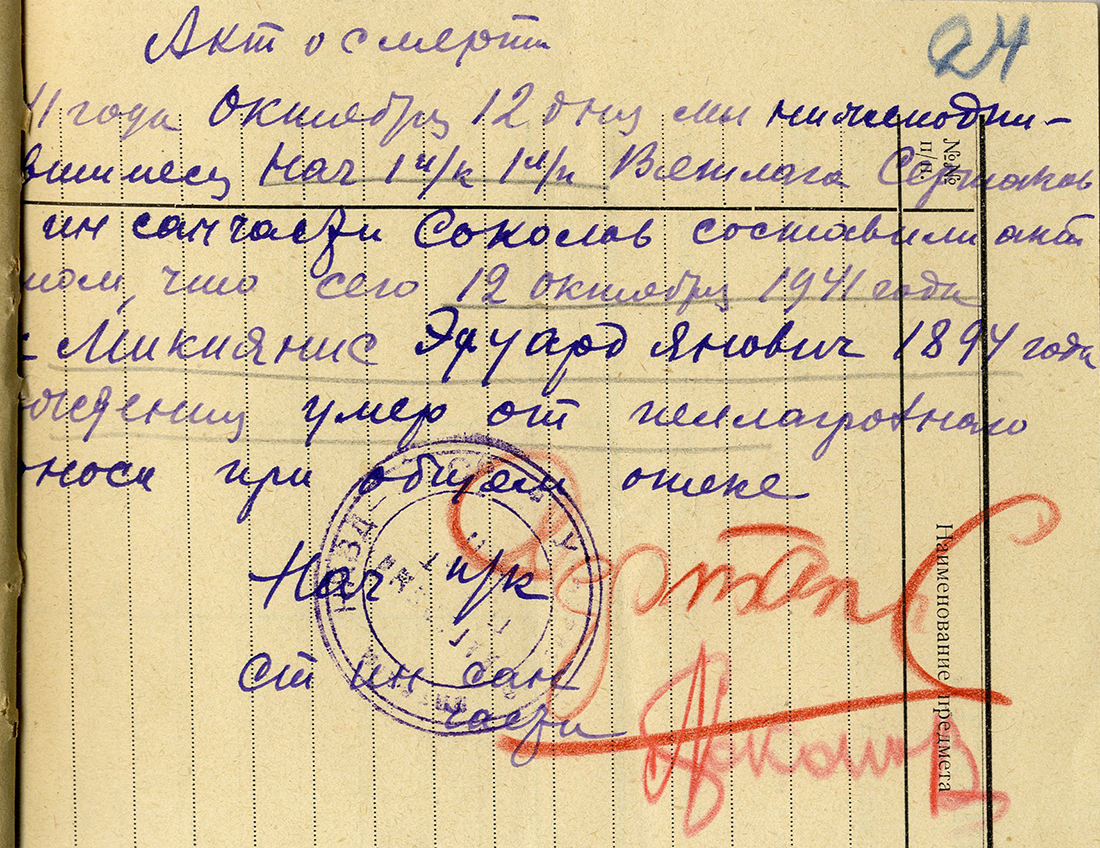 Акт о смерти
24
41 года Октября 12 дня мы нижеподпи-
вшиеся Нач 1 п/к 1 л/п Вятлага
№№
п/п.
ин санчасти Соколов составили акт
том, что сего 12 октября 1941 года
Микиянис Эдуард Янович 1894 года
умер от пеллагрозного
поноса при общем отеке
Нач п/к
ст ин сан
части
Наименование предмета
НКВД